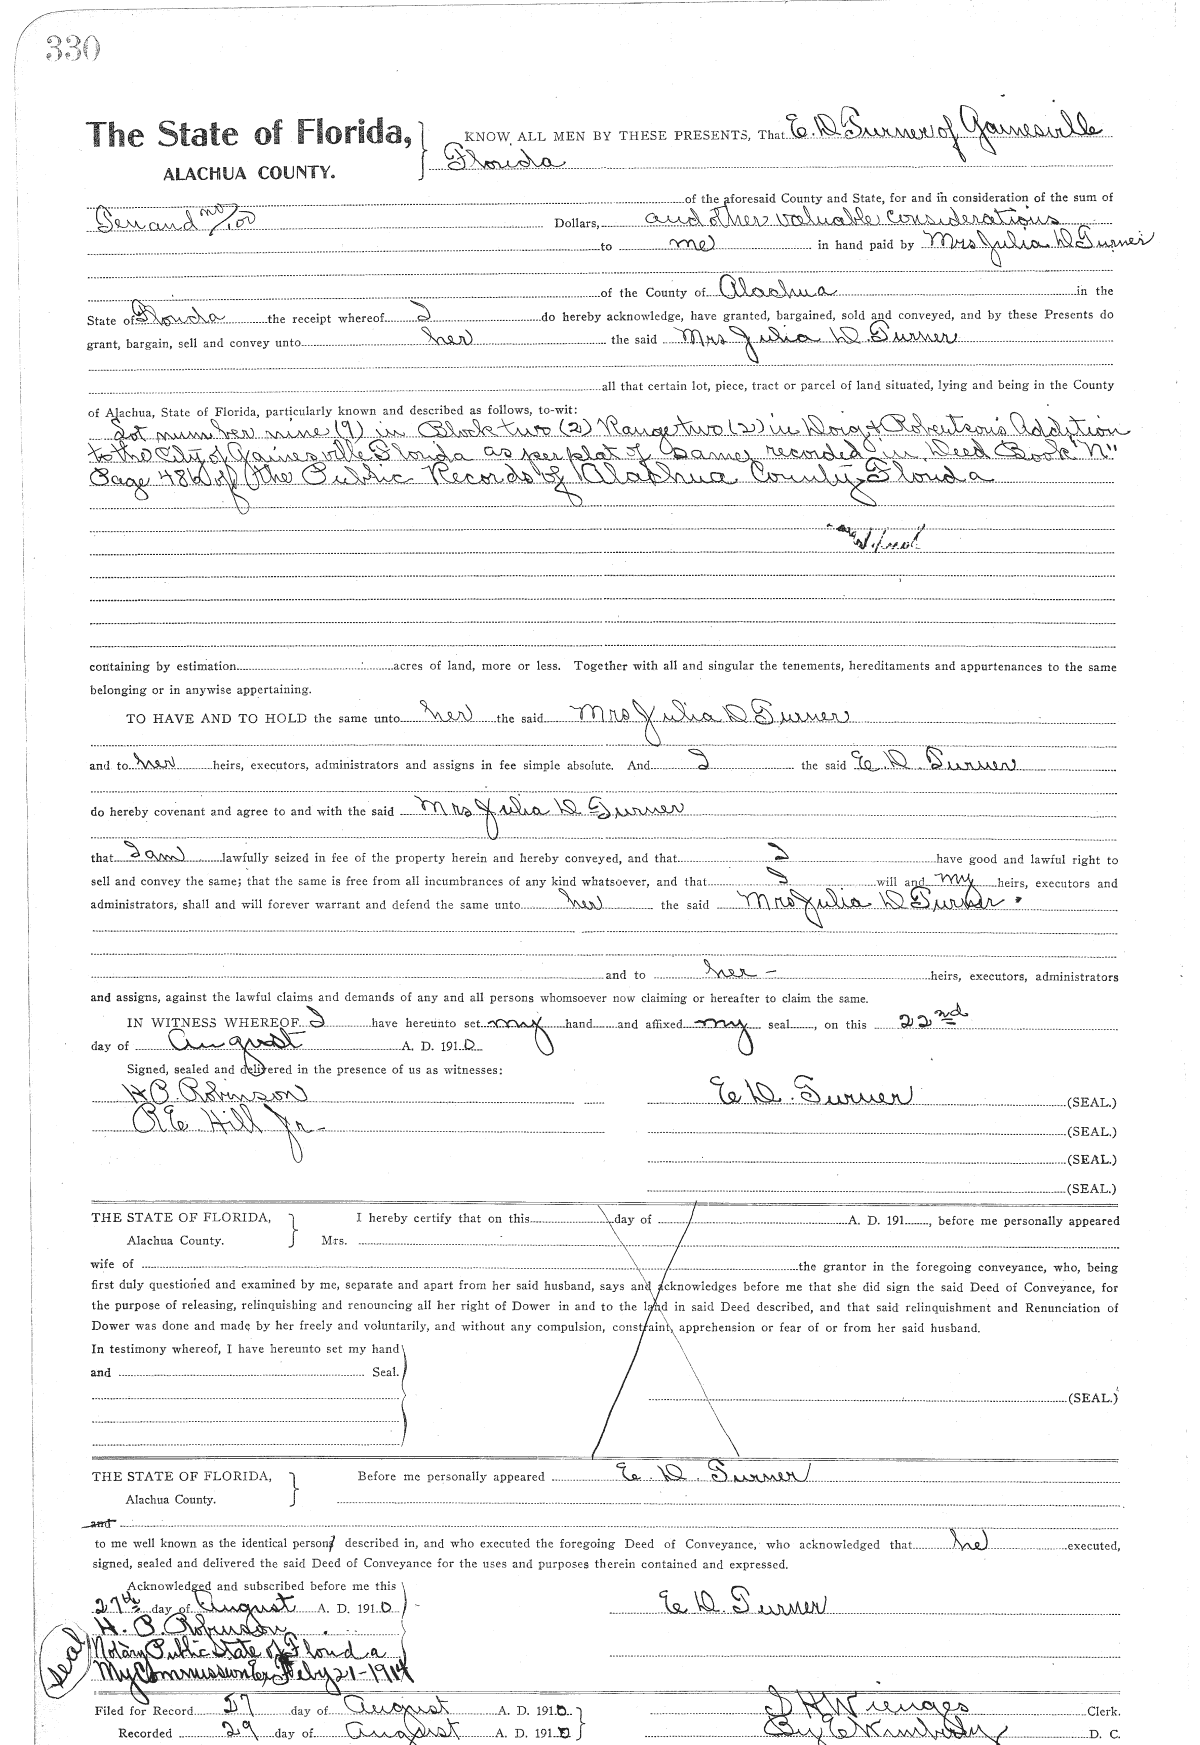 330
The State of Florida,
ALACHUA COUNTY.
KNOW ALL MEN BY THESE PRESENTS, That E. D. Turner of Gainesville
Florida
of the aforesaid County and State, for and in consideration of the sum of
Ten and no/100 Dollars, and other valuable considerations
to me in hand paid by Mrs Julia D Turner
of the County of Alachua in the
State of Florida the receipt whereof I do hereby acknowledge, have granted, bargained, sold and conveyed, and by these Presents do
grant, bargain, sell and convey unto her the said Mrs Julia D. Turner
all that certain lot, piece, tract or parcel of land situated, lying and being in the County
of Alachua, State of Florida, particularly known and described as follows, to-wit:
Lot number nine (9) in Block two (2) Range two (2) in Doig & Robertson's Addition
to the City of Gainesville Florida as per plat of same recorded in Deed Book "N"
Page 486 of the Public Records of Alachua County Florida
containing by estimation acres of land, more or less. Together with all and singular the tenements, hereditaments and appurtenances to the same
belonging or in anywise appertaining.
TO HAVE AND TO HOLD the same unto her the said Mrs Julia D Turner
and to her heirs, executors, administrators and assigns in fee simple absolute. And I the said E. D. Turner
do hereby covenant and agree to and with the said Mrs Julia D Turner
that I am lawfully seized in fee of the property herein and hereby conveyed, and that I have good and lawful right to
sell and convey the same; that the same is free from all incumbrances of any kind whatsoever, and that I will and my heirs, executors and
administrators, shall and will forever warrant and defend the same unto her the said Mrs Julia D Turner
and to her - heirs, executors, administrators
and assigns, against the lawful claims and demands of any and all persons whomsoever now claiming or hereafter to claim the same.
IN WITNESS WHEREOF I have hereunto set my hand and affixed my seal, on this 22nd
day of August A. D. 1910
Signed, sealed and delivered in the presence of us as witnesses:
H P. Robinson E. D. Turner (SEAL.)
R E. Hill Jr- (SEAL.)
(SEAL.)
(SEAL.)
THE STATE OF FLORIDA, I hereby certify that on this day of A. D. 191 , before me personally appeared
Alachua County. Mrs.
wife of the grantor in the foregoing conveyance, who, being
first duly questioned and examined by me, separate and apart from her said husband, says and acknowledges before me that she did sign the said Deed of Conveyance, for
the purpose of releasing, relinquishing and renouncing all her right of Dower in and to the land in said Deed described, and that said relinquishment and Renunciation of
Dower was done and made by her freely and voluntarily, and without any compulsion, constraint, apprehension or fear of or from her said husband.
In testimony whereof, I have hereunto set my hand
and Seal.
(SEAL.)
THE STATE OF FLORIDA, Before me personally appeared E. D. Turner
Alachua County.
and
to me well known as the identical person described in, and who executed the foregoing Deed of Conveyance, who acknowledged that he executed,
signed, sealed and delivered the said Deed of Conveyance for the uses and purposes therein contained and expressed.
Acknowledged and subscribed before me this
27th day of August A. D. 1910 E. D. Turner
H. P. Robinson
Notary Public State of Florida
My Commission Ex Feby 21-1914
Seal
Filed for Record 27 day of August A. D. 1910 S H Wienges Clerk.
Recorded 29 day of August A. D. 1910 By E Wimberly D. C.